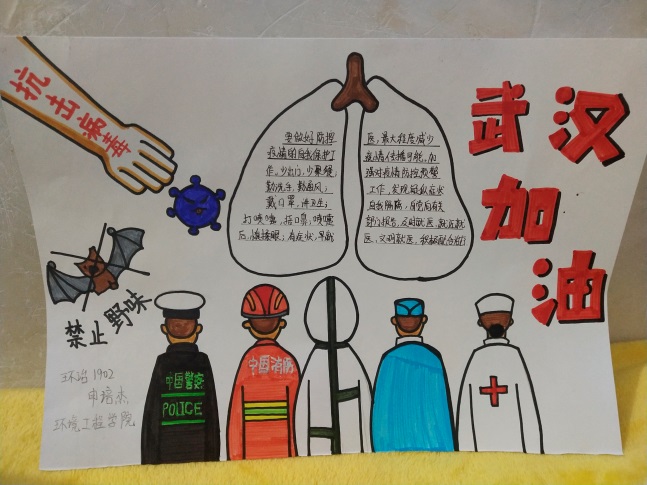 抗击病毒
武汉
加
油
要做好防控
疫情的自我保护工
作。少出门，少聚餐，
勤洗手，勤通风，
戴口罩，讲卫生；
打喷嚏，捂口鼻，喷嚏
后，慎揉眼；有症状，早就
医，最大程度减少
疫情传播可能。加
强对疫情防控预警
工作，发现疑似症状
自我隔离，自觉向有关
部门报告，及时就医，就近就
医，文明就医，积极配合治疗
禁止野味
中国警察
POLICE
中国消防
环治1902
环境工程学院